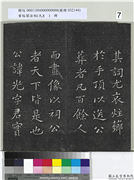 其詞尤哀炷薌
於手頂以送公
葬者凡百餘人
而畫像以祠公
者天下皆是也
公諱光字君實
7